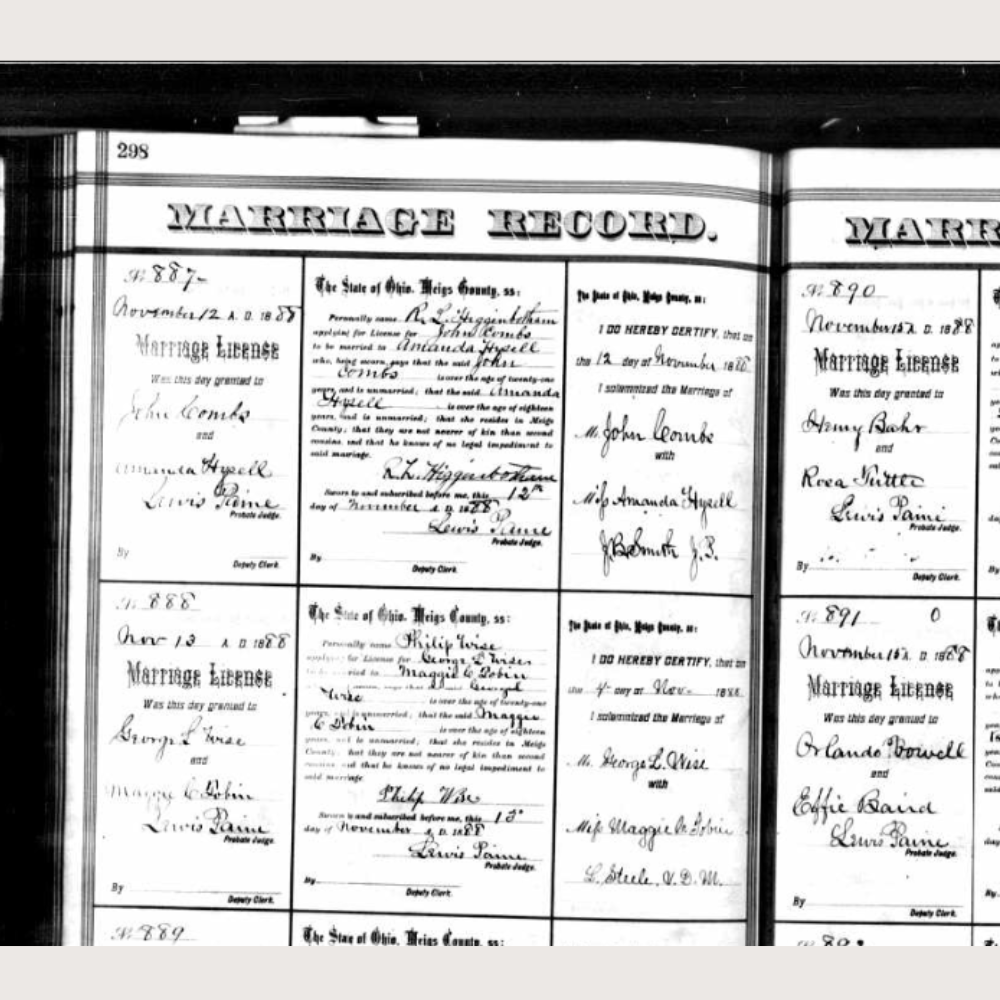 298
MARRIAGE RECORD.
No 887
November 12 A. D. 1888
Marriage License
Was this day granted to
John Combs
and
Amanda Hysell
Lewis Paine
Probate Judge.
By
Deputy Clerk.
The State of Ohio, Meigs County, ss:
Personally came R. L. Higginbotham
applying for License for John Combs
to be married to Amanda Hysell
who, being sworn, says that the said John
Combs is over the age of twenty-one
years, and is unmarried; that the said Amanda
Hysell is over the age of eighteen
years, and is unmarried; that she resides in Meigs
County; that they are not nearer of kin than second
cousins, and that he knows of no legal impediment to
said marriage.
R. L. Higginbotham
Sworn to and subscribed before me, this 12th
day of November A. D. 1888
Lewis Paine
Probate Judge.
By
Deputy Clerk.
The State of Ohio, Meigs County, ss:
I DO HEREBY CERTIFY, that on
the 12 day of November 1888
I solemnized the Marriage of
Mr. John Combs
with
Miss Amanda Hysell
J. B. Smith J. P.
No 888
Nov 13 A. D. 1888
Marriage License
Was this day granted to
George L Wise
and
Maggie C Tobin
Lewis Paine
Probate Judge.
By
Deputy Clerk.
The State of Ohio, Meigs County, ss:
Personally came Philip Wise
applying for License for George L Wise
to be married to Maggie C Tobin
says that George L
Wise is over the age of twenty-one
years, and is unmarried; that the said Maggie
C Tobin is over the age of eighteen
years, and is unmarried; that she resides in Meigs
County; that they are not nearer of kin than second
cousins and that he knows of no legal impediment to
said marriage.
Philip Wise
Sworn to and subscribed before me, this 13"
day of November A. D. 1888
Lewis Paine
Probate Judge.
By
Deputy Clerk.
The State of Ohio, Meigs County, ss:
I DO HEREBY CERTIFY, that on
the day of Nov- 1888
I solemnized the Marriage of
Mr. George L. Wise
with
Miss Maggie Tobin
L. Steele, V. D. M.
No 889
The State of Ohio, Meigs County, ss:
MARR
No 890
November 15 A. D. 1888
Marriage License
Was this day granted to
Henry Bahr
and
Rosa Tuttle
Lewis Paine
Probate Judge.
By
Deputy Clerk.
No 891 0
November 15 A. D. 1888
Marriage License
Was this day granted to
Orlando Powell
and
Effie Baird
Lewis Paine
Probate Judge.
By
Deputy Clerk.